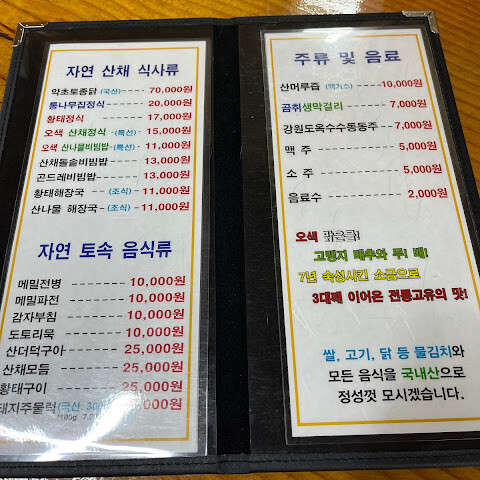 자연 산채 식사류
약초토종닭 (국산) 70,000원
통나무집정식 20,000원
황태정식 17,000원
오색 산채정식 -(특선)- 15,000원
오색 산나물비빔밥 -(특선)- 11,000원
산채돌솥비빔밥 13,000원
곤드레비빔밥 13,000원
황태해장국 -(조식)- 11,000원
산나물 해장국 -(조식)- 11,000원
자연 토속 음식류
메밀전병 10,000원
메밀파전 10,000원
감자부침 10,000원
도토리묵 10,000원
산더덕구이 25,000원
산채모듬 25,000원
황태구이 25,000원
돼지주물럭 (국산 300
(100g 7,0 ,000원
주류 및 음료
산머루즙 (엑기스) 10,000원
곰취생막걸리 7,000원
강원도옥수수동동주 7,000원
맥 주 5,000원
소 주 5,000원
음료수 2,000원
오색 맑은물!
고랭지 배추와 무! 배!
7년 숙성시킨 소금으로
3대째 이어온 전통고유의 맛!
쌀, 고기, 닭 등 물김치와
모든 음식을 국내산으로
정성껏 모시겠습니다.